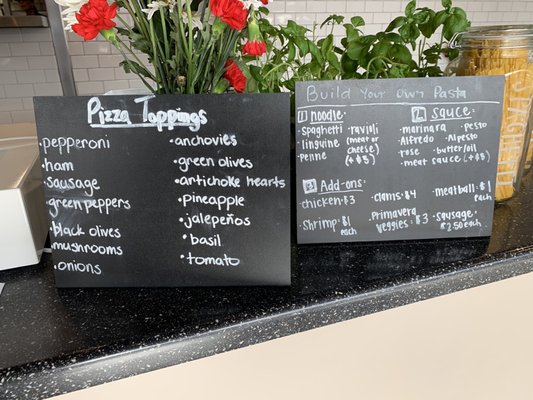 Pizza Toppings
• pepperoni
• ham
• sausage
• green peppers
• black olives
• mushrooms
• onions
• anchovies
• green olives
• artichoke hearts
• pineapple
• jalepeños
• basil
• tomato
Build Your Own Pasta
1 noodle:
spaghetti • ravioli
linguine (meat or cheese)
penne
2. sauce:
• marinara • pesto
• AlFredo • Alpesto
• rose • butter/oil
• meat sauce
3 Add-ons:
chicken • $3 • clams • $4 • meatball • $1 each
shrimp • $1 each
primavera veggies • $3
• sausage • $2.50 each